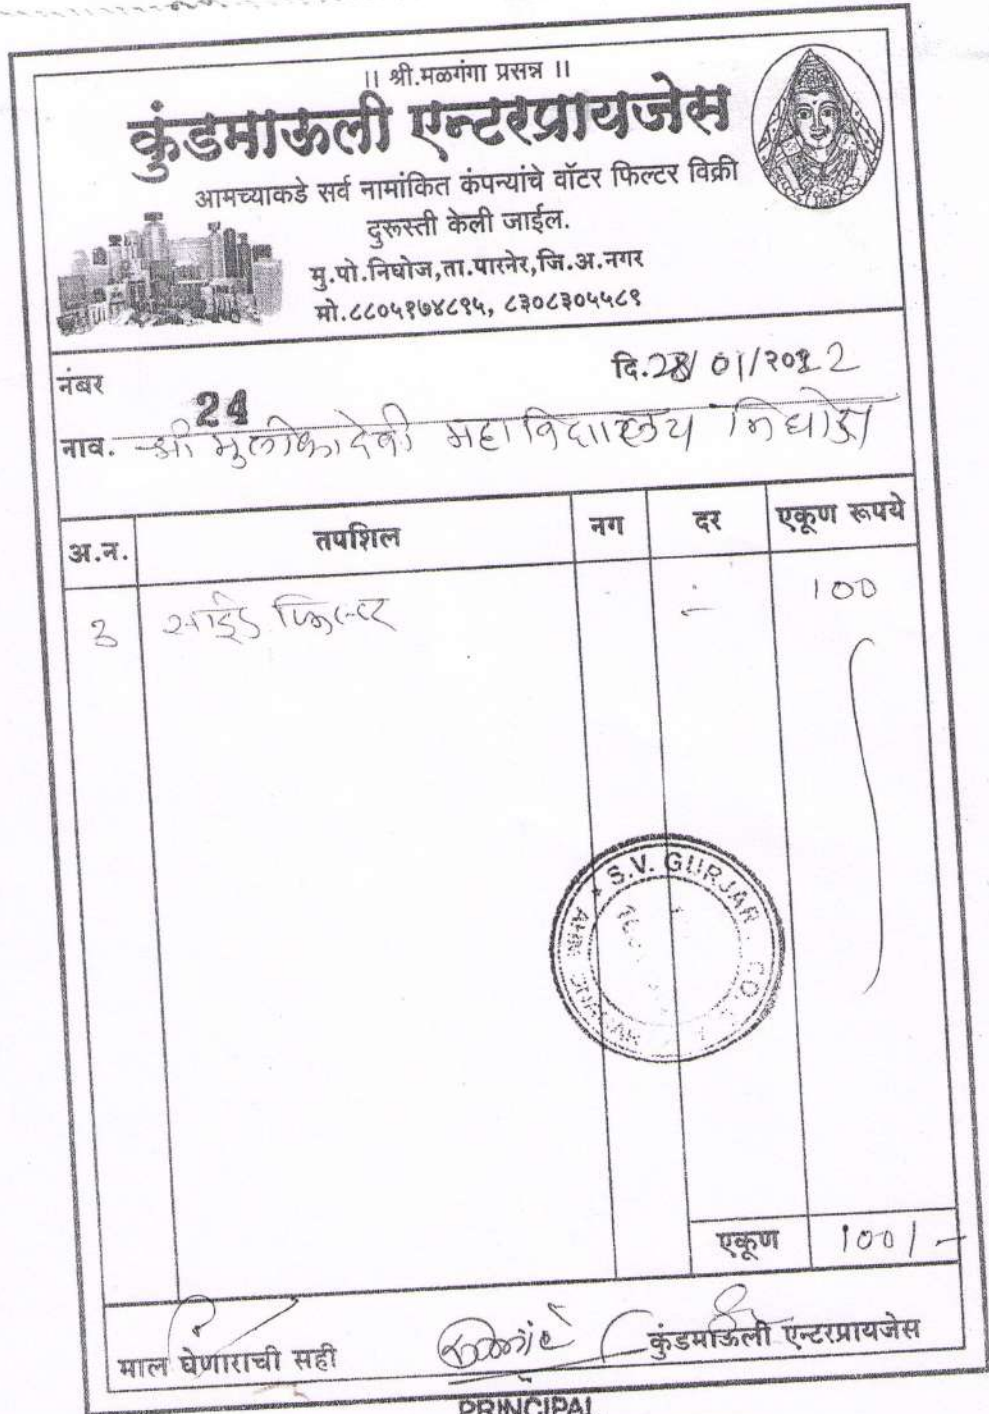 || श्री.मळगंगा प्रसन्न ||
कुंडमाऊली एन्टरप्रायजेस
आमच्याकडे सर्व नामांकित कंपन्यांचे वॉटर फिल्टर विक्री
दुरूस्ती केली जाईल.
मु.पो.निघोज,ता.पारनेर,जि.अ.नगर
मो.८८०५१७४८९५, ८३०८३०५५८९
नंबर 24 दि.28/01/२०22
नाव. श्री मुलीकादेवी महाविद्यालय निघोज
अ.न. तपशिल नग दर एकूण रूपये
3 साईड फिल्टर 100
S.V. GURJAR CO.
एकूण 100/-
माल घेणाराची सही कुंडमाऊली एन्टरप्रायजेस
PRINCIPAL